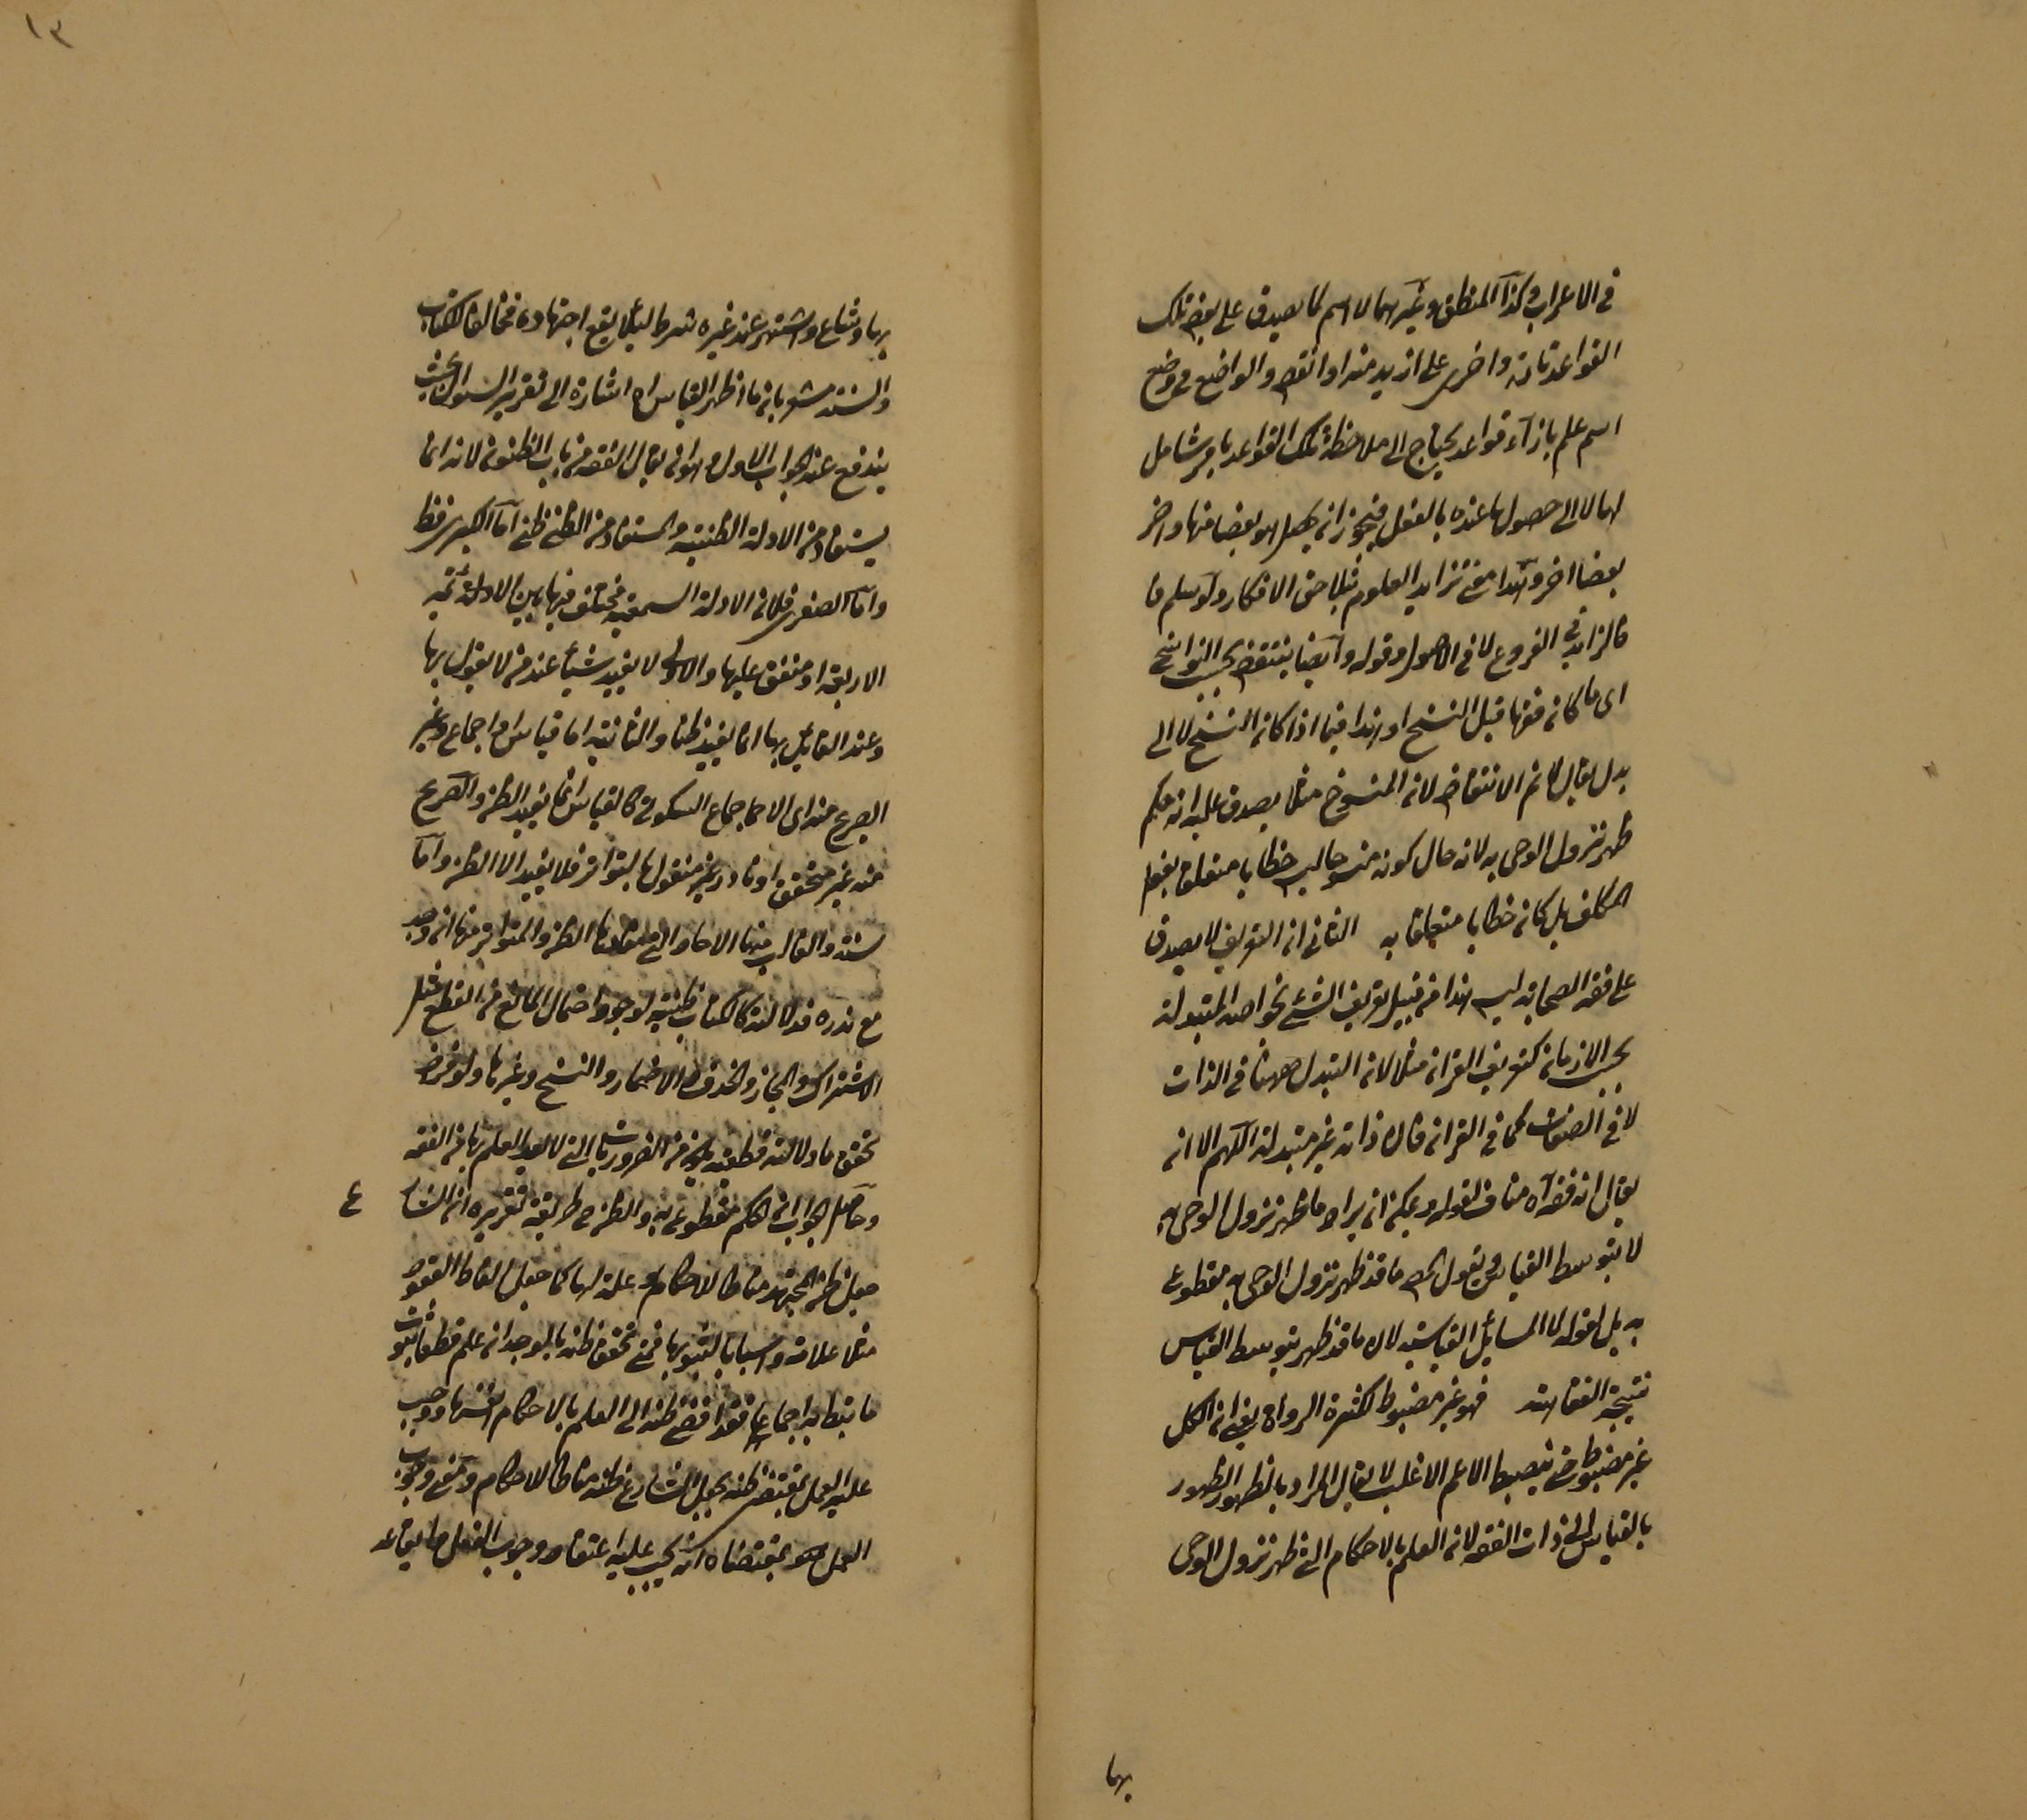 في الاعراب وكذا المنطق وغيرهما لاسم كما يصدق على بعض تلك
القواعد تارة واخرى على ازيد منه او انقص والواضع في وضع
اسم علم بازآء قواعد يحتاج الى ملاحظة تلك القواعد بامر شامل
لها لا الى حصولها عنده بالفعل فيجوز ان يحصل هو بعضا منها واخر
بعضا اخر وهذا معنى تزايد العلوم بتلاحق الافكار ولو سلم فا
فالتزايد في الفروع لا في الاصول وقوله وايضا ينتقض بحسب النواسخ
اى ما كان فقها قبل النسخ او هذا فيما اذا كان النسخ لا الى
بدل يقال لا نم الانتقاض لان المنسوخ مثلا يصدق عليه انه حكم
ظهر نزول الوحى به لانه حال كونه منسوخا ليس خطابا متعلقا بفعل
المكلف بل كان خطابا متعلقا به الثانى ان التعريف لا يصدق
على فقه الصحابة ليس هذا من قبيل تعريف الشئ بخواصه المتبدلة
بحسب الازمان كتعريف القران مثلا لان التبدل ههنا في الذات
لا في الصفات كما في القران فان ذاته غير متبدلة اللهم الا ان
يقال انه فقه آه مناف لقوله ويمكن ان يراد ما ظهر نزول الوحى به
لا بتوسط القياس ويقول الخصم ما قد ظهر نزول الوحى به مقطوع
به بل لقوله لا المسائل القياسية لان ما قد ظهر بتوسط القياس
نتيجة الفقاهة فهو غير مضبوط لكثرة الرواة يعنى ان الكل
غير مضبوط حتى ينضبط الاعم الاغلب لا يقال المراد بالظهور الظهور
بالقياس الى ذات الفقه لان العلم بالاحكام التى ظهر نزول الوحى
بها
١٣
بها وشاع واشتهر عند غيره شرط لئلا يقع اجتهاده مخالفا للكتاب
والسنة مشعر بان ما اظهر القياس اه اشارة الى تقرير السوال بحيث
يندفع عنه الجواب الاول وهو ان يقال الفقه من باب الظنون لانه انما
يستفاد من الادلة الظنية والمستفاد من الظنى ظنى اما الكبرى فظ
واما الصغرى فلان الادلة السمعية مختلف فيها بين الادلة ئمة
الاربعة او متفق عليها والاولى لا يفيد شيأ عند من لا يقول بها
وعند القائل بها انما يفيد ظنا والثانية اما قياس او اجماع وغير
الصريح منه اى الاجماع السكوتى كالقياس انما يفيد الظن والصريح
منه غير متحقق او نادر غير منقول بالتواتر فلا يفيد الا الظن واما
سنة والغالب منها الاحاد التى مفادها الظن والمتواتر منها ان وجد
مع ندره فدلالته كالكتاب ظنية لوجود احتمال المانع من القطع مثل
الاشتراك والمجاز والحذف والاضمار والنسخ وغيرها ولو فرض
تحقق ما دلالته قطعية يكون من الضروريات التى لا يعد العلم بها من الفقه
وحاصل الجواب ان الحكم مقطوع به والظن في طريقه تقريره ان الشا ع
جعل ظن المجتهد مناط الاحكام وعلة لها كما جعل الفاظ العقود
مثلا علامة واسبابا لثبوتها فمتى تحقق ظنه بالوجدان علم قطعا ثبوت
ما نيط به اجماعا فقد افضى ظنه الى العلم بالاحكام انفسها ووجب
عليه العمل بمقتضى ظنه بجعل الشارع ظنه مناطا للاحكام ومعنى وجوب
العمل هو بمقتضاه انه يجب عليه اعتقاد وجوب الفعل وايقاعه